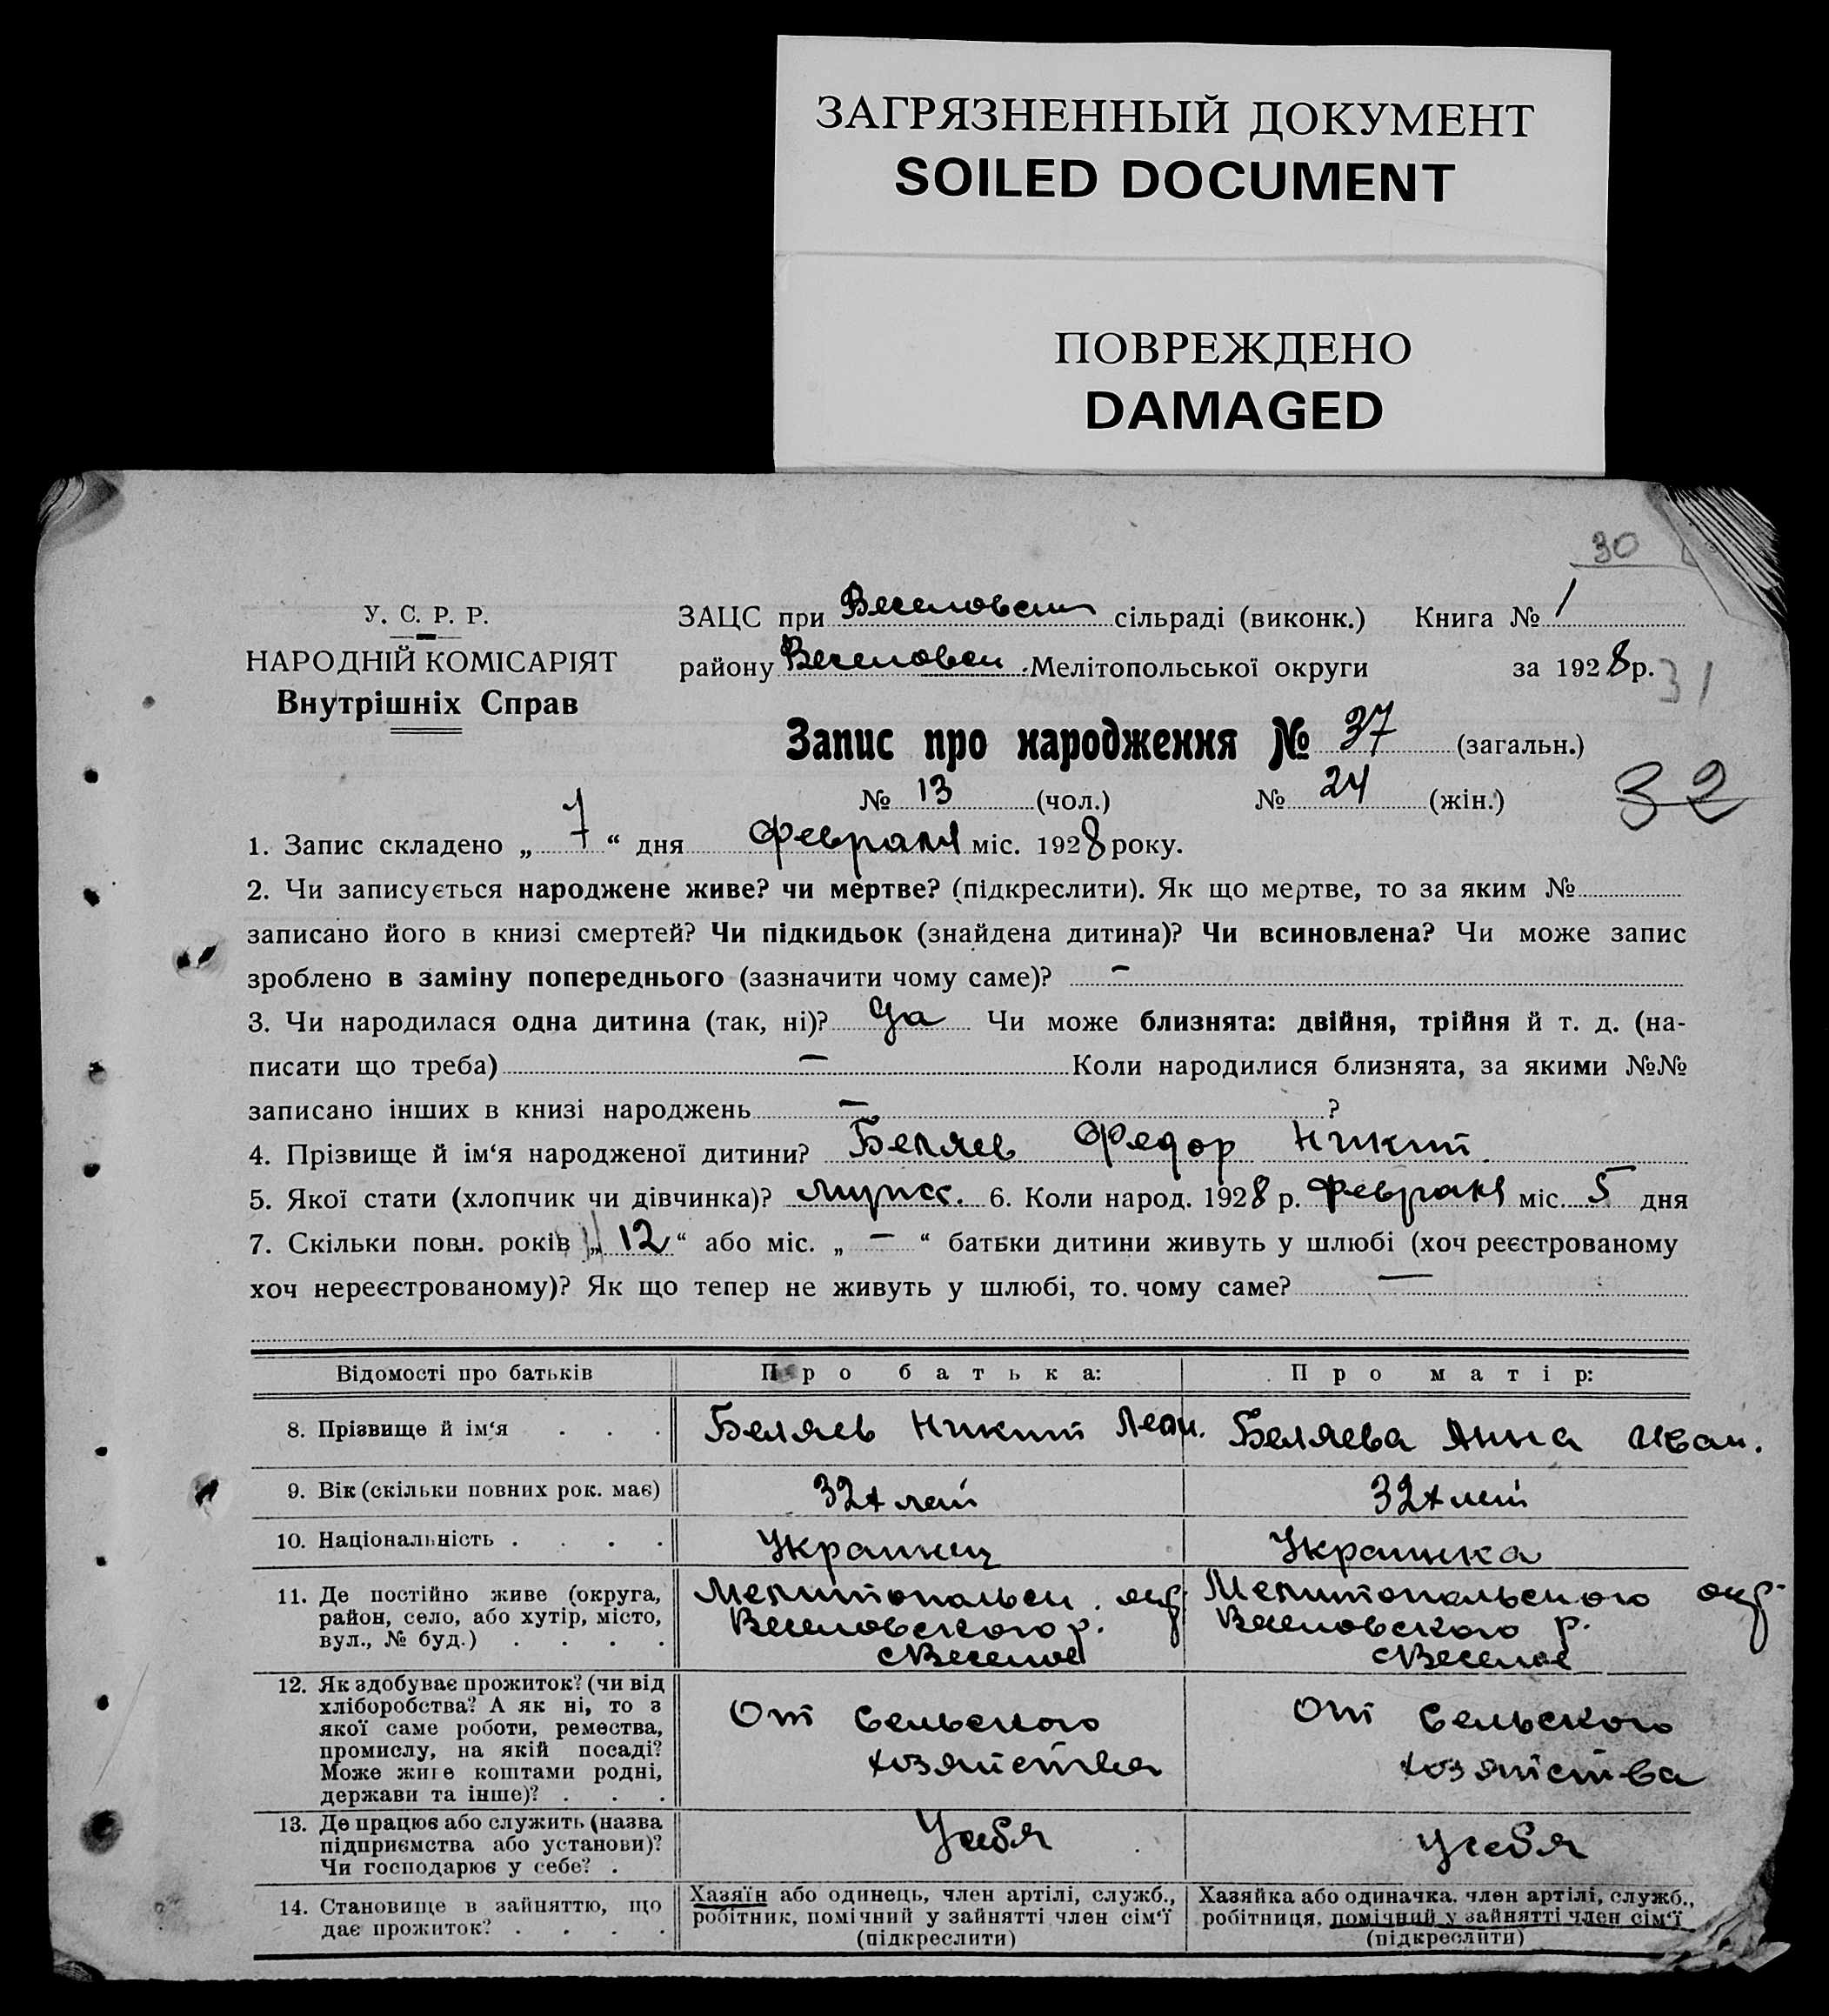 ЗАГРЯЗНЕННЫЙ ДОКУМЕНТ
SOILED DOCUMENT
ПОВРЕЖДЕНО
DAMAGED
30
У. С. Р. Р.
НАРОДНІЙ КОМІСАРІЯТ
Внутрішніх Справ
ЗАЦС при Веселовском сільраді (виконк.) Книга № 1
району Веселовск Мелітопольської округи за 1928 р. 31
Запис про народження № 37 (загальн.)
№ 13 (чол.) № 24 (жін.) 32
1. Запис складено „ 7 “ дня февраля міс. 1928 року.
2. Чи записується народжене живе? чи мертве? (підкреслити). Як що мертве, то за яким №
записано його в книзі смертей? Чи підкидьок (знайдена дитина)? Чи всиновлена? Чи може запис
зроблено в заміну попереднього (зазначити чому саме)? –
3. Чи народилася одна дитина (так, ні)? Да Чи може близнята: двійня, трійня й т. д. (на-
писати що треба) – Коли народилися близнята, за якими №№
записано інших в книзі народжень – ?
4. Прізвище й ім‘я народженої дитини? Беляев Федор Никит.
5. Якої стати (хлопчик чи дівчинка)? мужск. 6. Коли народ. 1928 р. февраля міс. 5 дня
7. Скільки повн. років „ 12 “ або міс. „ – “ батьки дитини живуть у шлюбі (хоч реєстрованому
хоч нереєстрованому)? Як що тепер не живуть у шлюбі, то. чому саме? –
Відомості про батьків Про батька: Про матір:
8. Прізвище й ім‘я . . . Беляев Никит Леон. Беляева Анна Иван.
9. Вік (скільки повних рок. має) 32 лет 32 лет
10. Національність . . . . Украинец Украинка
11. Де постійно живе (округа,
район, село, або хутір, місто,
вул., № буд.) . . . .
Мелитопольск. окр.
Веселовского р.
с Веселое
Мелитопольского окр.
Веселовского р.
с Веселое
12. Як здобуває прожиток? (чи від
хліборобства? А як ні, то з
якої саме роботи, ремества,
промислу, на якій посаді?
Може живе коштами родні,
держави та інше)? . . .
От сельского
хозяйства
От сельского
хозяйства
13. Де працює або служить (назва
підприємства або установи)?
Чи господарює у себе? .
У себя
У себя
14. Становище в зайняттю, що
дає прожиток? . . . .
Хазяїн або одинець, член артілі, служб.,
робітник, помічний у зайнятті член сім‘ї
(підкреслити)
Хазяйка або одиначка, член артілі, служб.,
робітниця, помічний у зайнятті член сім‘ї
(підкреслити)